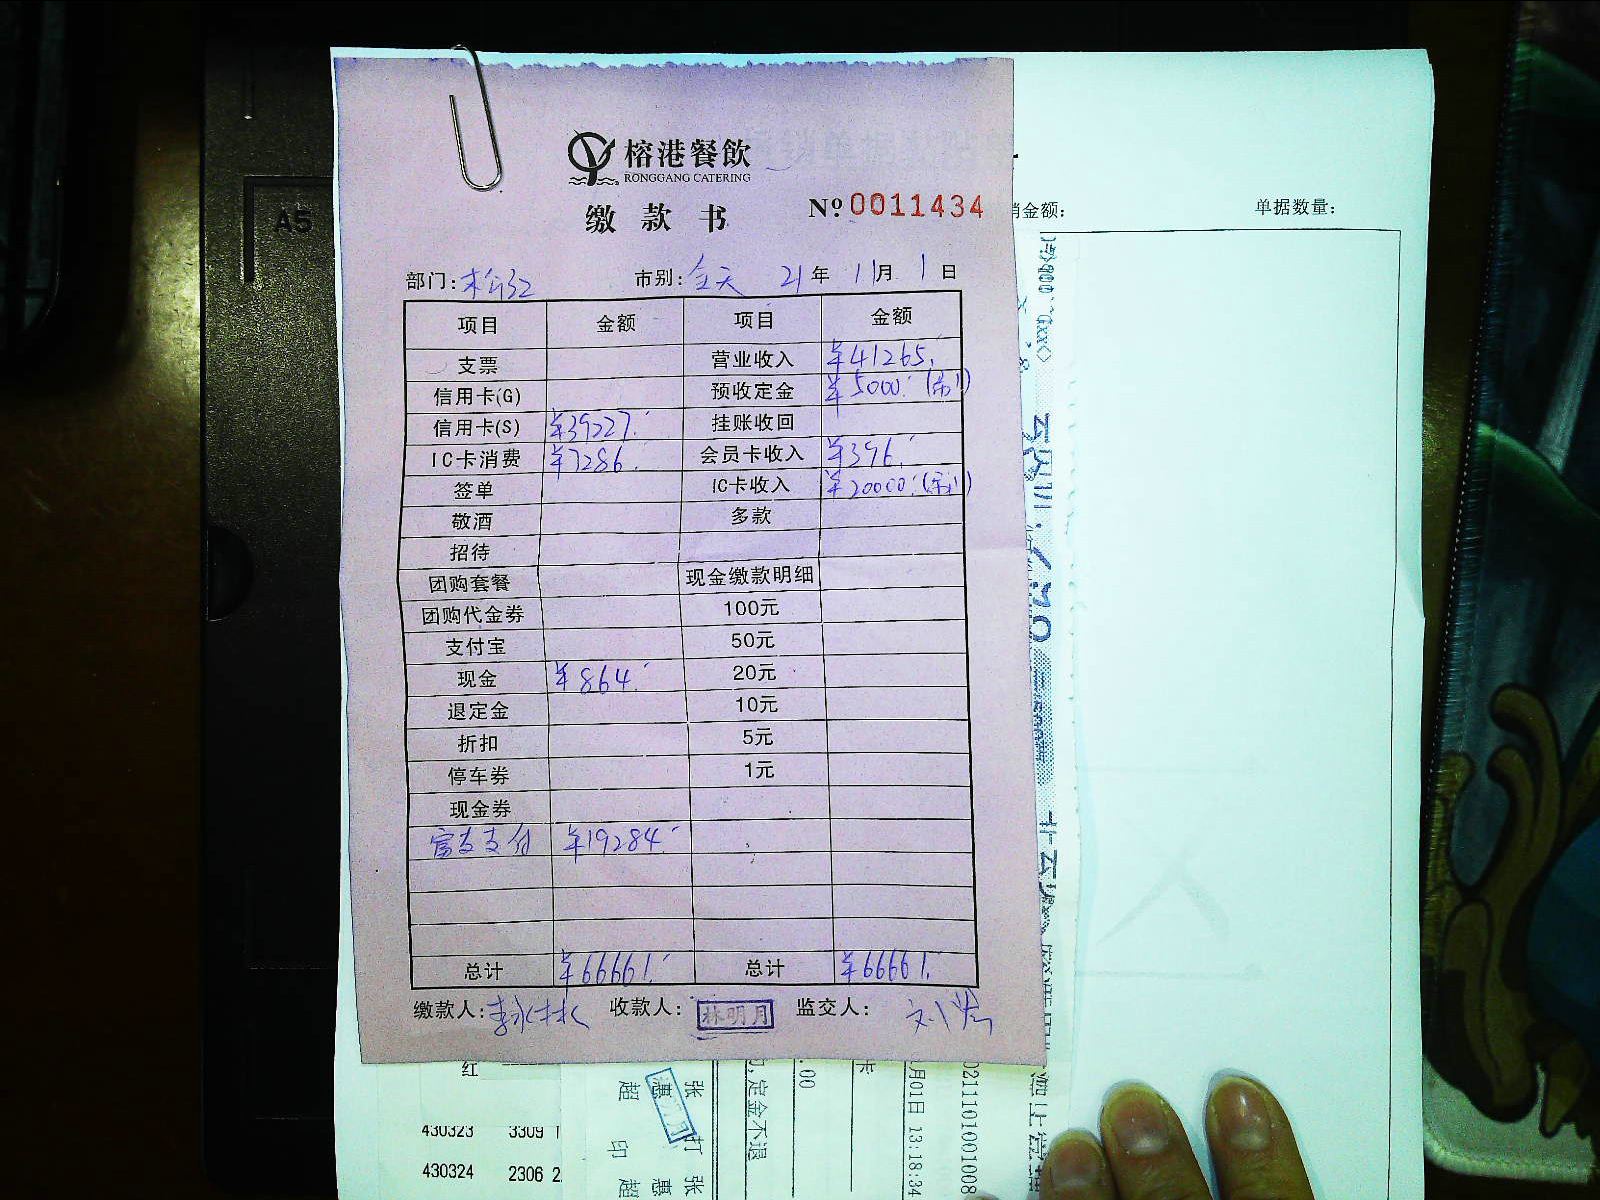 榕港餐飲
RONGGANG CATERING
缴款书 №0011434
销金额: 单据数量:
部门: 市别:全天 21年11月1日
项目 金额 项目 金额
支票 营业收入 ¥41265.
信用卡(G) 预收定金 ¥5000.
信用卡(S) ¥39227. 挂账收回
IC卡消费 ¥7286. 会员卡收入 ¥396.
签单 IC卡收入 ¥20000.
敬酒 多款
招待
团购套餐 现金缴款明细
团购代金券 100元
支付宝 50元
现金 ¥864. 20元
退定金 10元
折扣 5元
停车券 1元
现金券
富友支付 ¥19284.
总计 ¥66661. 总计 ¥66661.
缴款人: 收款人:林明月 监交人:
红
430323 3309
430324 2306
定金不退
月01日 13:18:34
A5